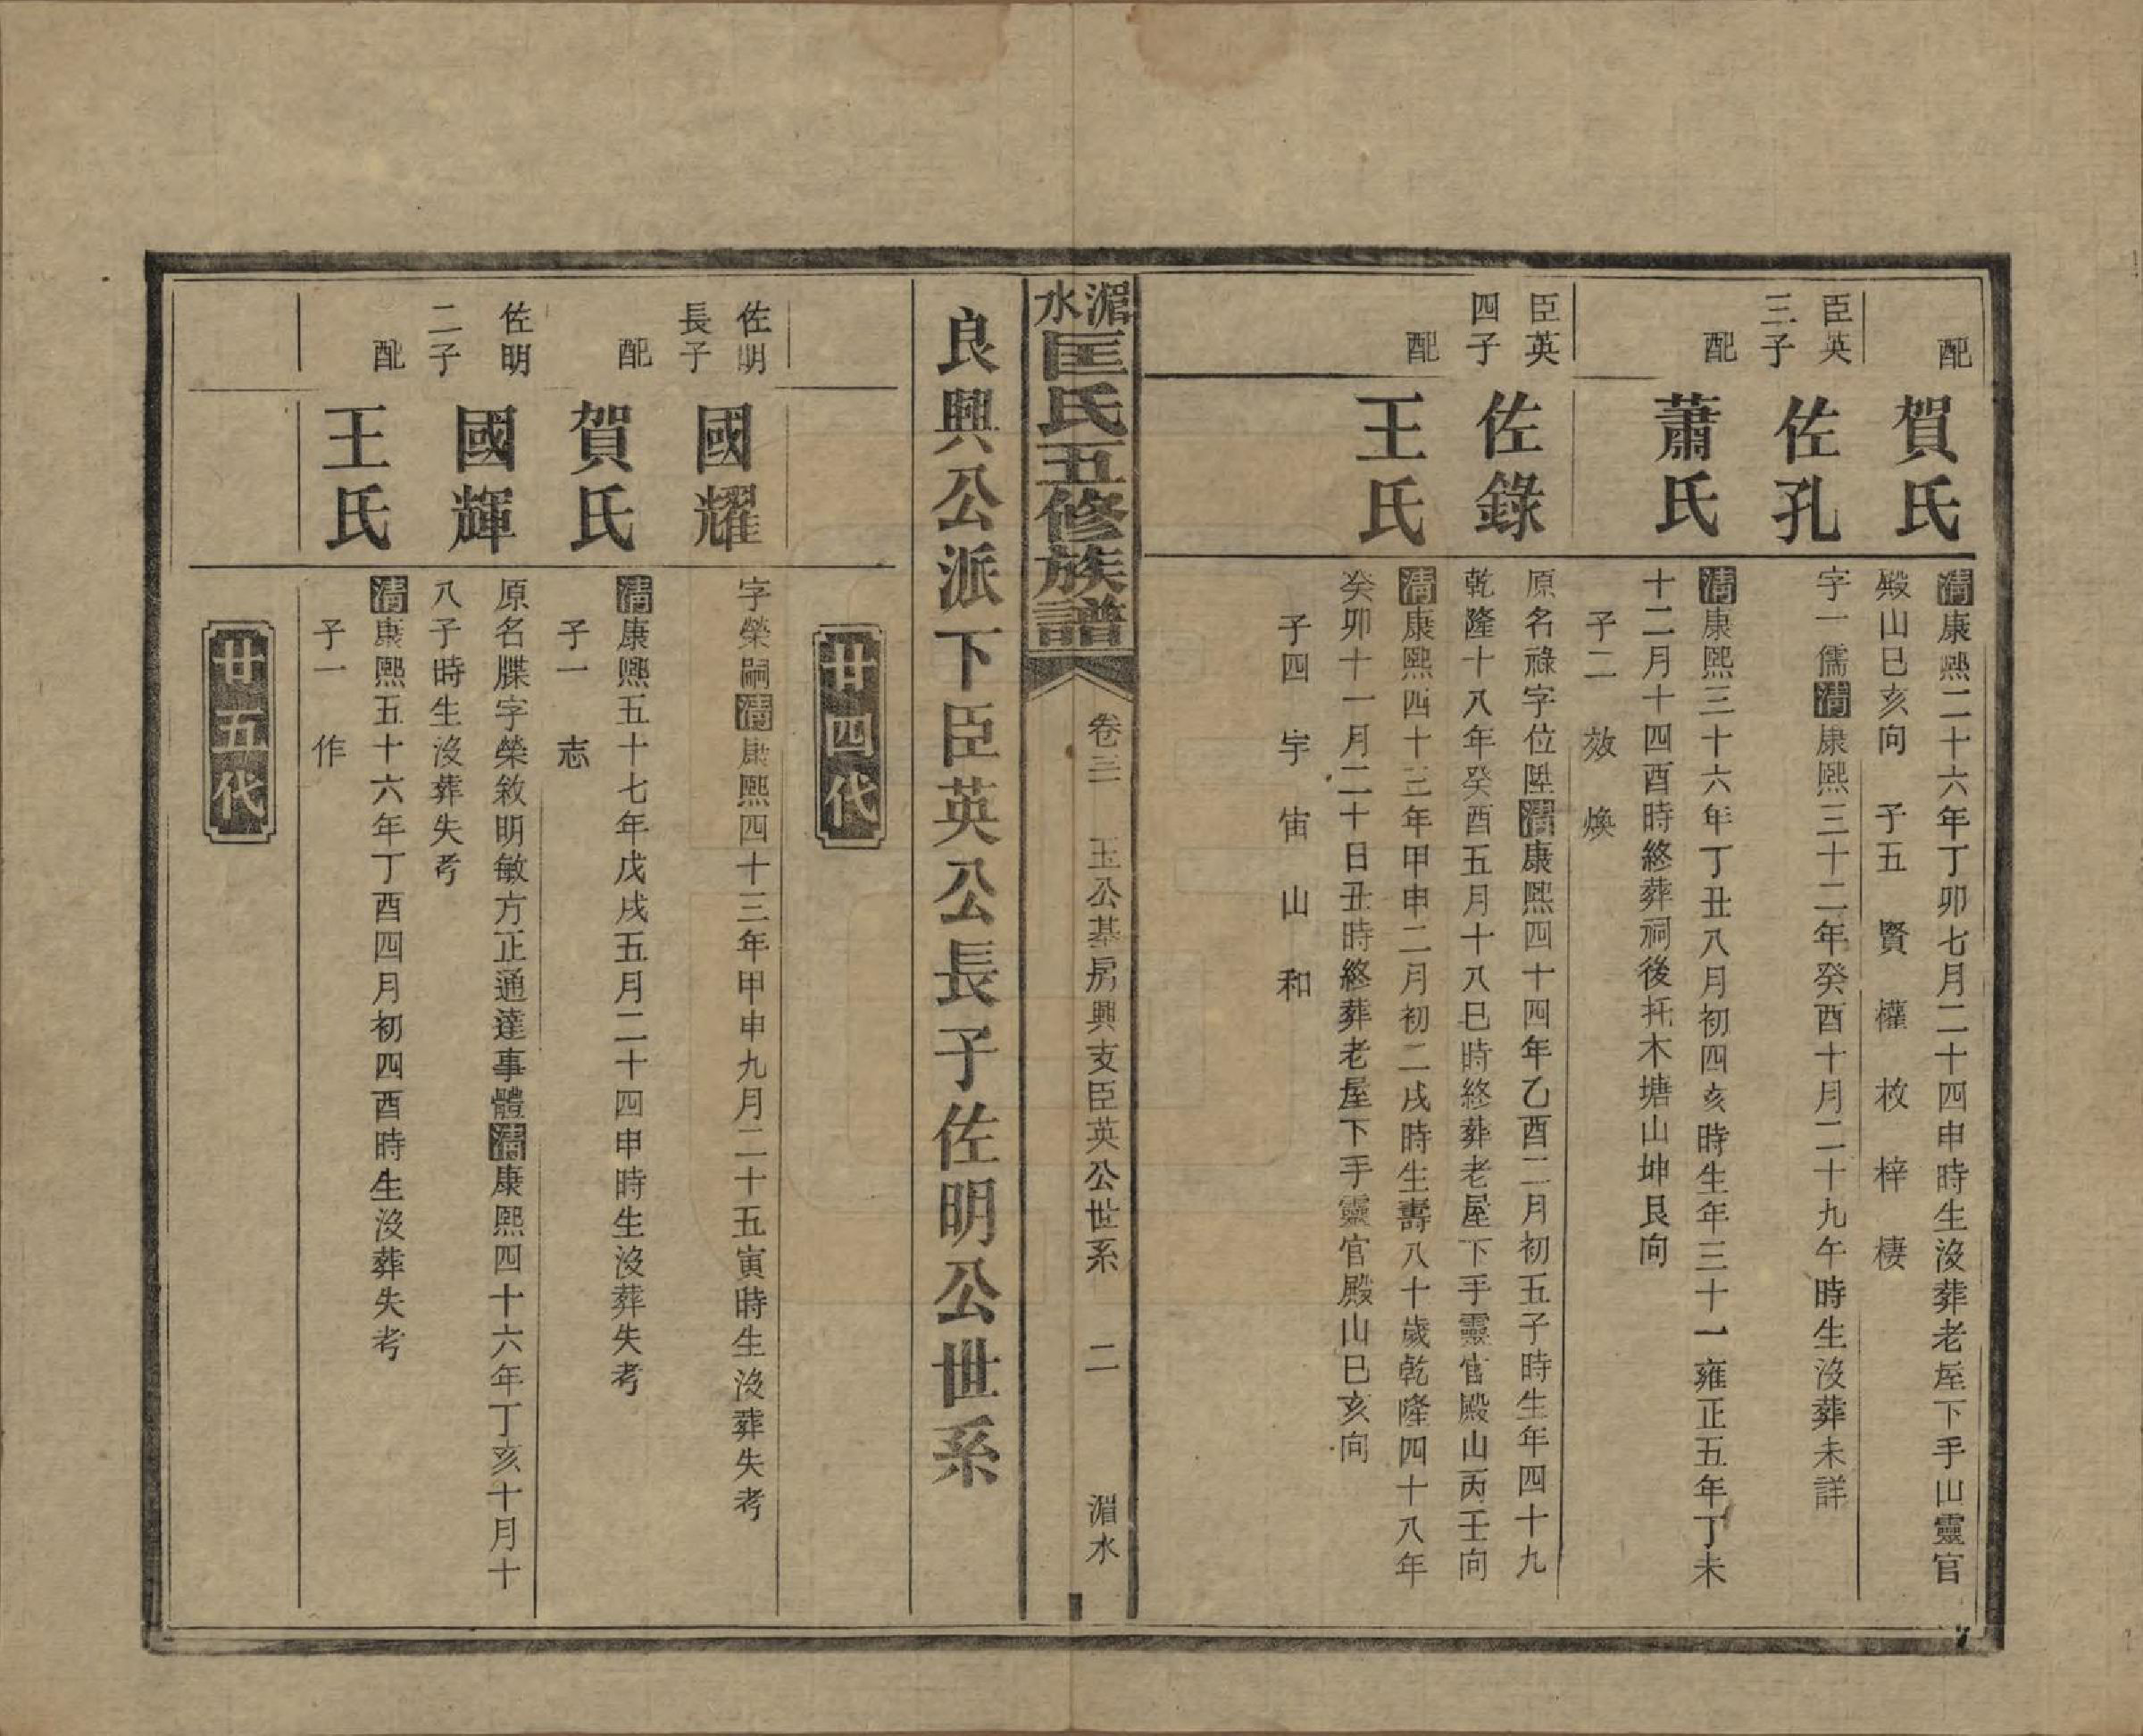 配
賀氏
清康熙二十六年丁卯七月二十四申時生沒葬老屋下手山靈官
殿山巳亥向 子五 賢 權 枚 梓 棲
臣英
三子
佐孔
字一儒清康熙三十二年癸酉十月二十九午時生沒葬未詳
配
蕭氏
清康熙三十六年丁丑八月初四亥時生年三十一雍正五年丁未
十二月十四酉時終葬祠後托木塘山坤艮向
子二 效 煥
臣英
四子
佐錄
原名祿字位陞清康熙四十四年乙酉二月初五子時生年四十九
乾隆十八年癸酉五月十八巳時終葬老屋下手靈官殿山丙壬向
配
王氏
清康熙四十三年甲申二月初二戌時生壽八十歲乾隆四十八年
癸卯十一月二十日丑時終葬老屋下手靈官殿山巳亥向
子四 宇 宙 山 和
湄水匡氏五修族譜
卷三 玉公基房興支臣英公世系 二 湄水
良興公派下臣英公長子佐明公世系
廿四代
佐明
長子
國耀
字榮嗣清康熙四十三年甲申九月二十五寅時生沒葬失考
配
賀氏
清康熙五十七年戊戌五月二十四申時生沒葬失考
子一 志
佐明
二子
國輝
原名牒字榮敘明敏方正通達事體清康熙四十六年丁亥十月十
八子時生沒葬失考
配
王氏
清康熙五十六年丁酉四月初四酉時生沒葬失考
子一 作
廿五代